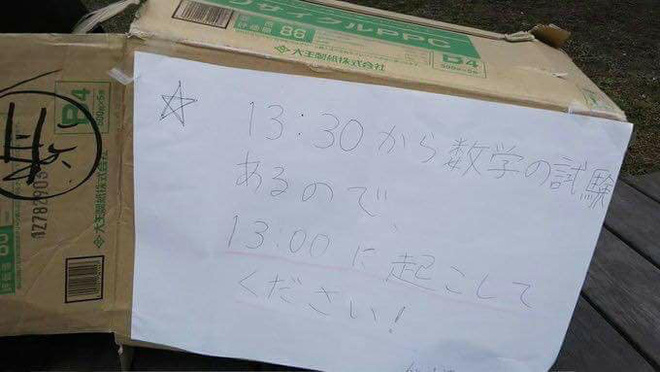 リサイクルPPC
86
大王製紙株式会社
B4
☆ 13:30から数学の試験
あるので、
13:00に起こして
ください!
B4
大王製紙株式会社